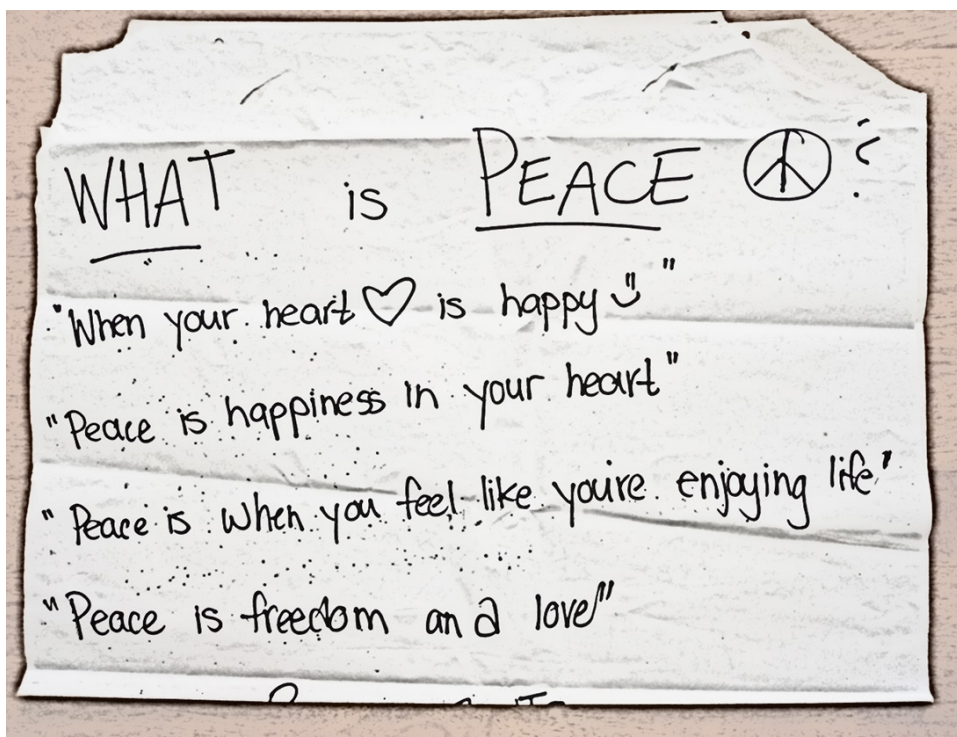 WHAT is PEACE ☮ ?
"When your heart ♡ is happy ツ"
"Peace is happiness in your heart"
"Peace is when you feel like you're enjoying life"
"Peace is freedom and love"